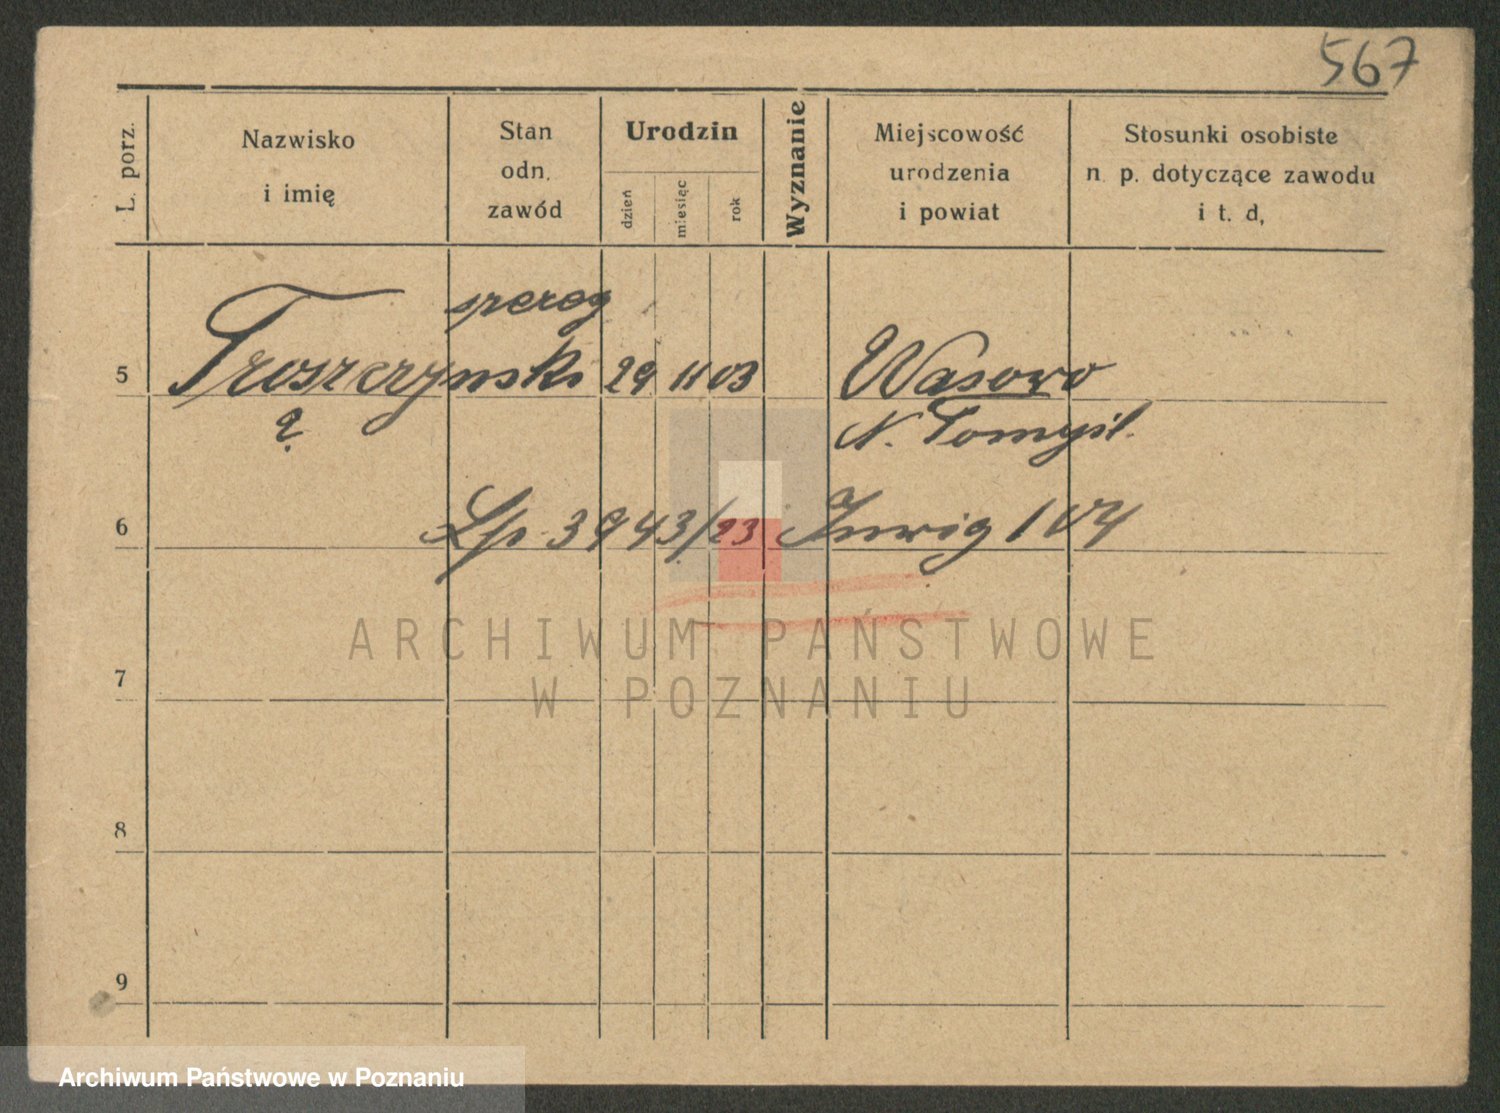 567
L. porz.
Nazwisko
i imię
Stan
odn.
zawód
Urodzin
dzień
miesiąc
rok
Wyznanie
Miejscowość
urodzenia
i powiat
Stosunki osobiste
n. p. dotyczące zawodu
i t. d,
szereg
5 Troszczynski 29 11 03 Wasowo
N. Tomyśl.
6 Lp 3943/23
7
8
9
ARCHIWUM PAŃSTWOWE
W POZNANIU
Archiwum Państwowe w Poznaniu